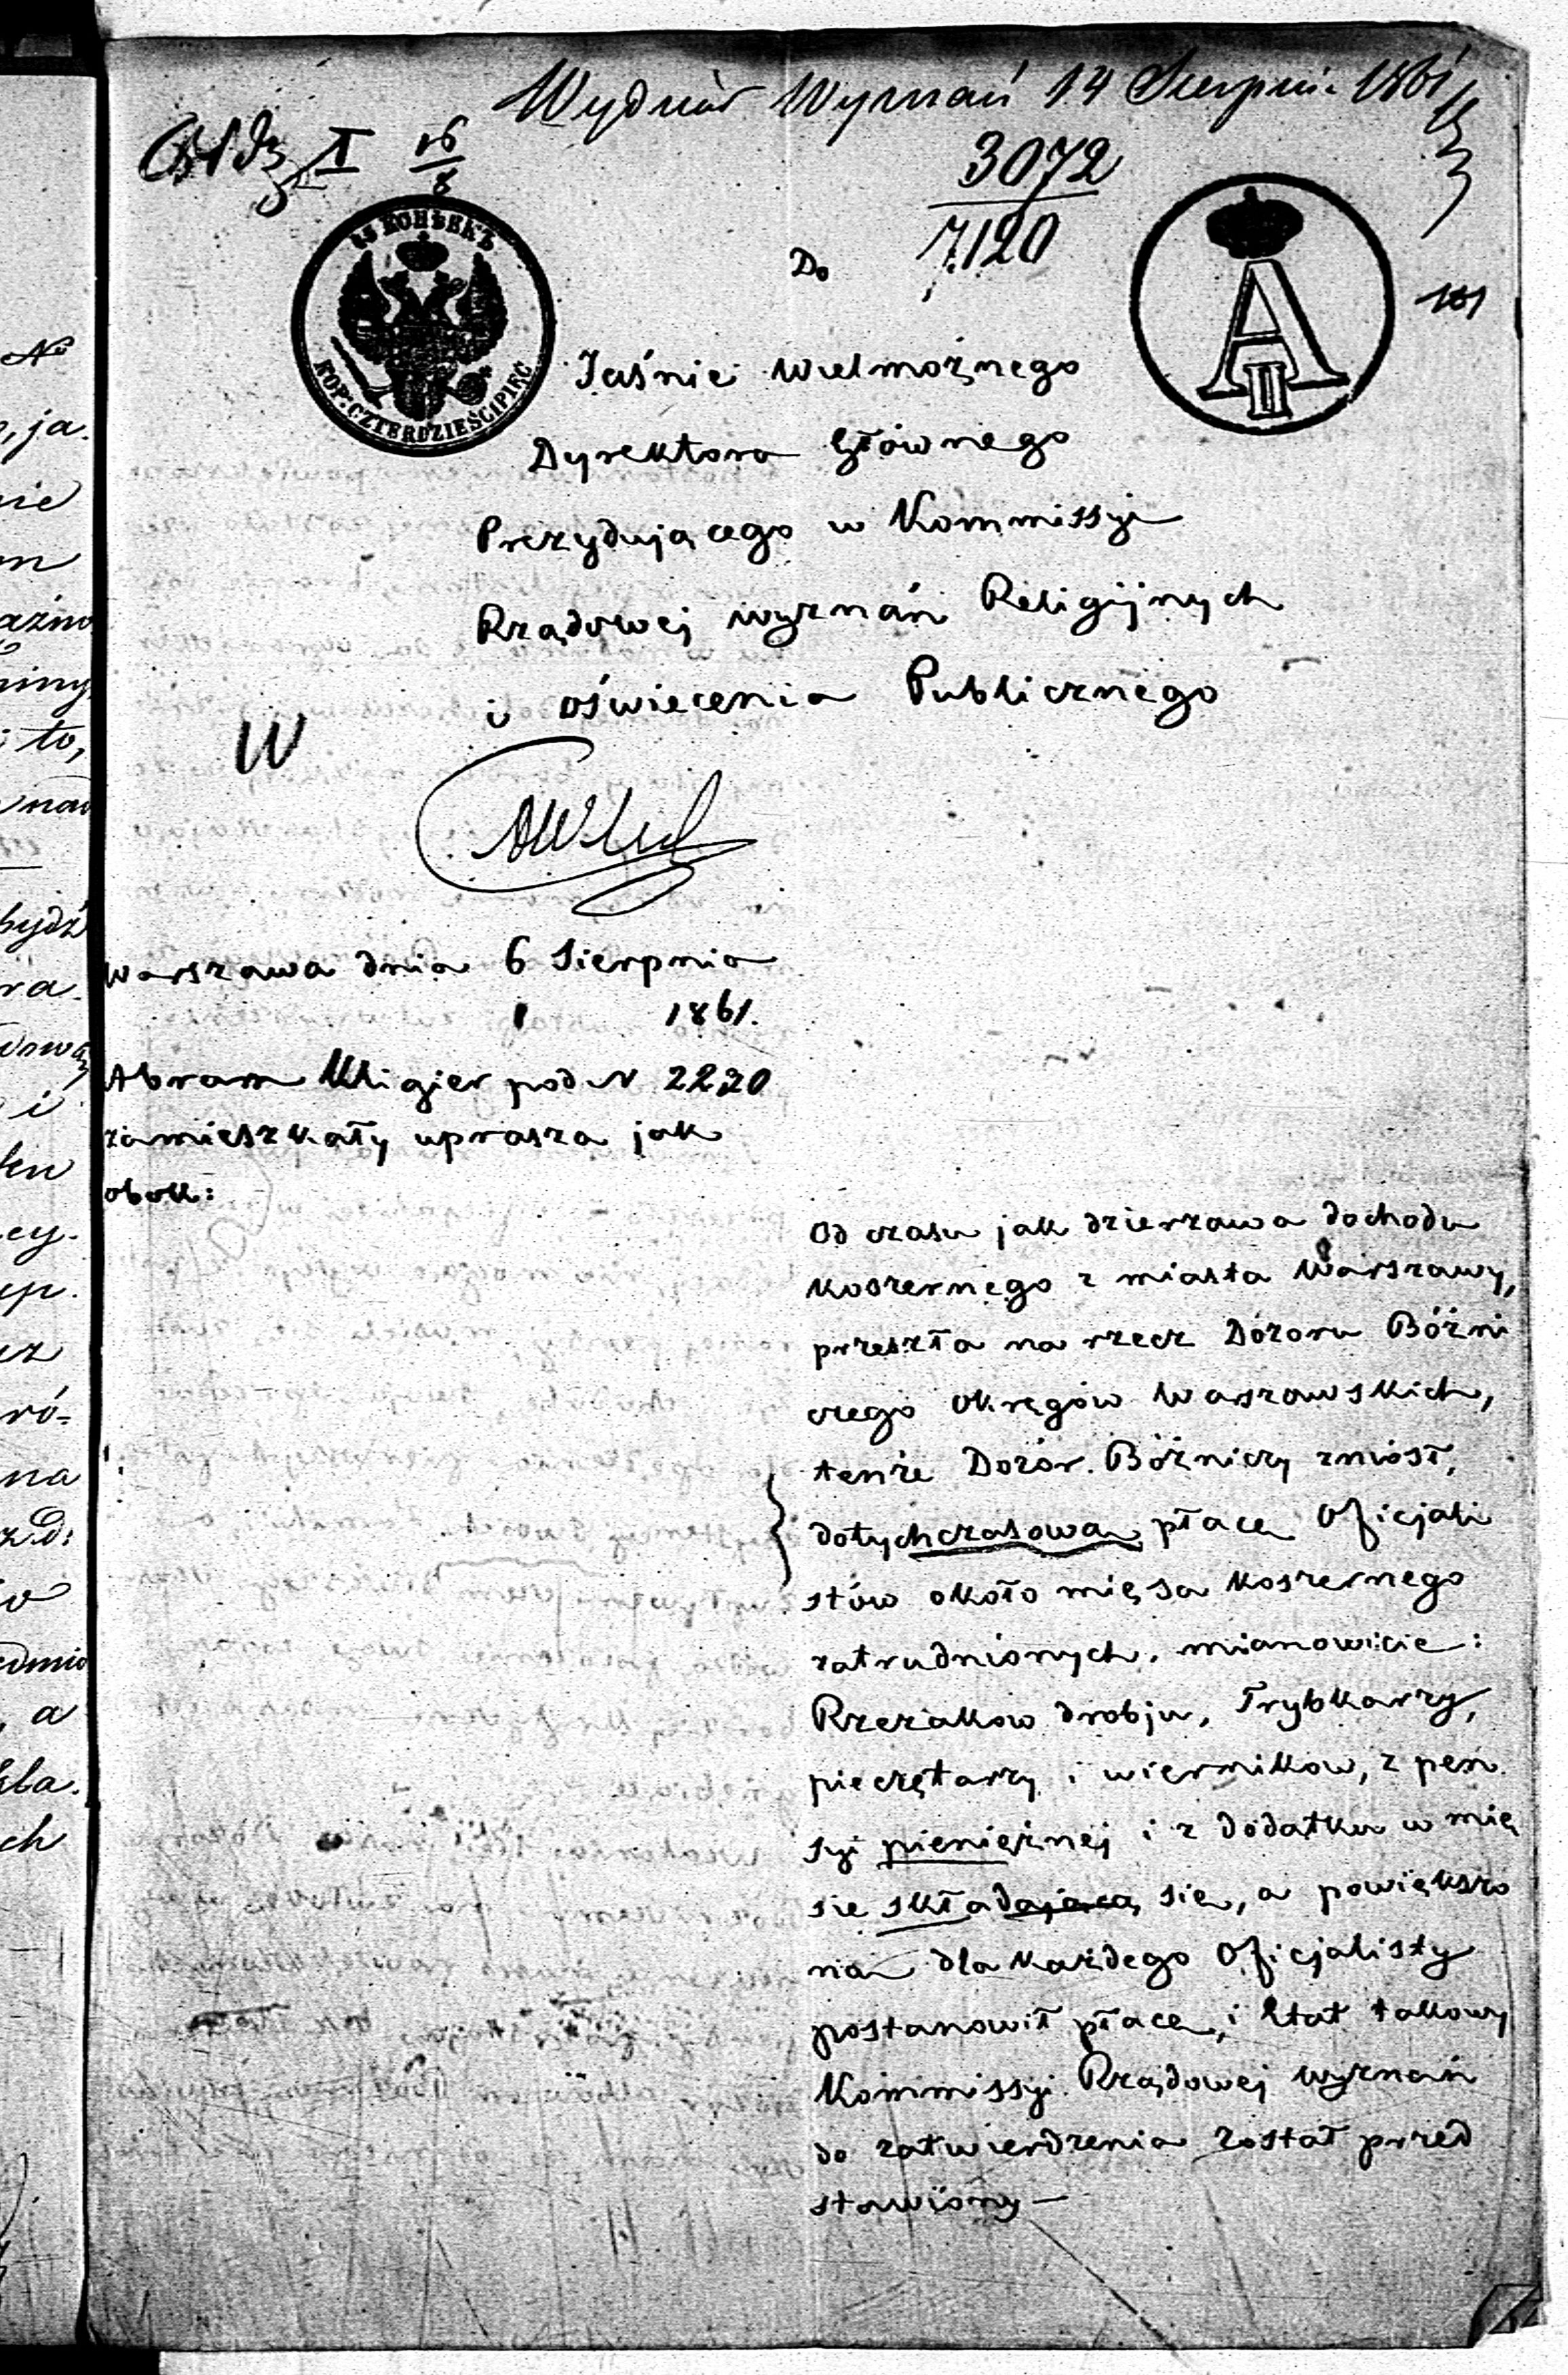 Wydział Wyznań 14 Sierpnia 1861
I 16/8
3072
7120
45 КОПѢЕКЪ
КОР: CZTERDZIEŚCI PIĘĆ
A II
101
Do
Jaśnie Wielmożnego
Dyrektora Głównego
Prezydującego w Kommissyi
Rządowej wyznań Religijnych
i oświecenia Publicznego
W
Warszawa dnia 6 Sierpnia
1861.
Abram Kligier pod N 2220
zamieszkały uprasza jak
obok:
Od czasu jak dzierzawa dochodu
koszernego z miasta Warszawy,
przeszła na rzecz Dozoru Bóżni
czego Okręgów Warszawskich,
tenże Dozór Bóżniczy zniósł,
dotychczasową płacę Oficjali
stów około mięsa koszernego
zatrudnionych, mianowicie:
Rzezakow drobju, Trybkarzy,
pieczętarzy i wiernikow, z pen
syi pieniężnej i z dodatku w mię
sie składającą się, a powiększo
na dla każdego Oficjalisty
postanowił płacę, i Etat takowy
Kommissyi Rządowej wyznań
do zatwierdzenia został przed
stawiony —